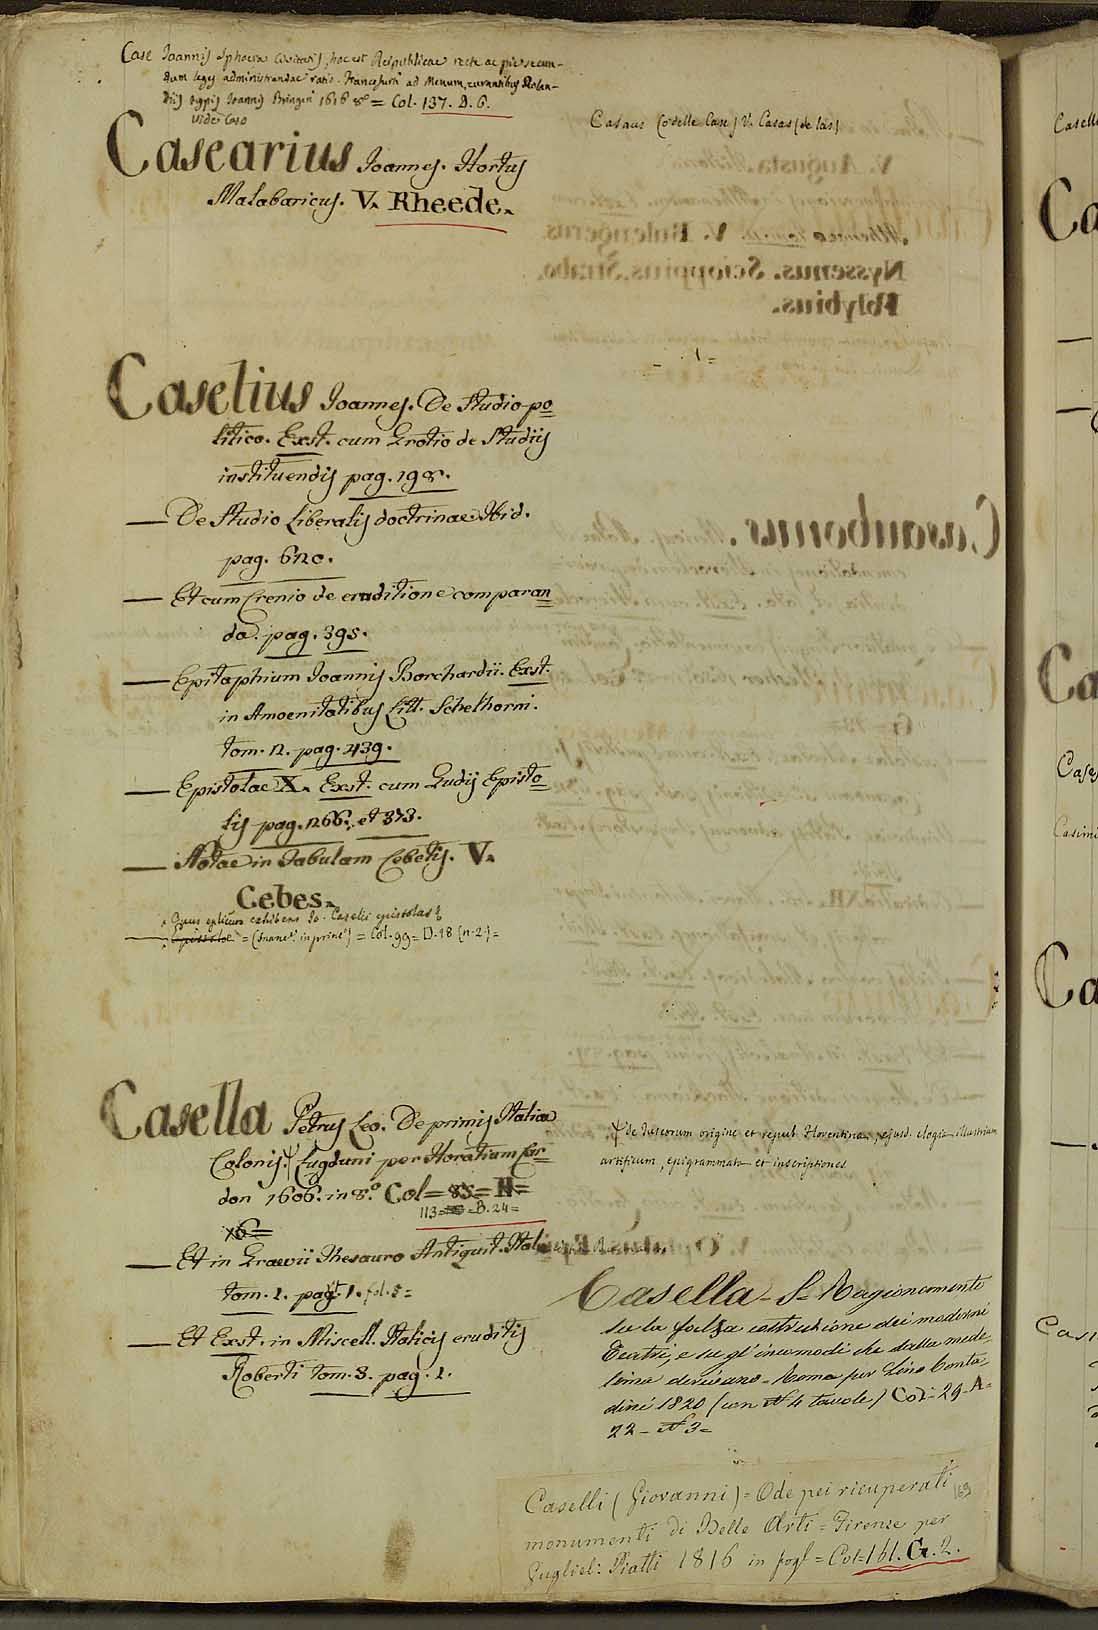 Case Joannis Sphaera Civitatis, hoc est Reipublicae recte ac pie secun-
dum leges administrandae ratio. Francofurti ad Menum, curantibus
Joannis Bringeri 1616 8º = Col. 137. D. 6.
Vide Caso
Casearius Joannes. Hortus
Malabaricus. V. Rheede.
Caselius Joannes. De Studio po
litico. Exst. cum Grotio de Studiis
instituendis pag. 198.
— De Studio liberalis doctrinae Ibid.
pag. 620.
— Et cum Crenio de eruditione comparan
da. pag. 395.
— Epitaphium Joannis Borchardii. Exst.
in Amoenitatibus Litt. Schelhorni.
tom. 2. pag. 439.
— Epistolae X. Exst. cum Gudii Episto
lis pag. 266. et 373.
— Notae in Tabulam Cebetis. V.
Cebes.
Opus exhibens Jo. Caselii epistolas
— Epistolae = = Col. 99 = D. 18 (n. 2) =
Casella Petrus Leo. De primis Italiae
Colonis. Lugduni per Horatium Car
don 1606. in 8.º Col = 85 = H =
113 = B. 24 =
16 =
— Et in Graevii Thesauro Antiquit. Italiae
tom. 1. pag. 1. fol. 5 =
— Et Exst. in Miscell. Italicis eruditis
Roberti tom. 3. pag. 1.
Casaus (o delle Case) V. Casas (de las)
de Tuscorum origine et republ. Florentina, ejusd. elogia illustrium
artificum, epigrammata et inscriptiones
Casella - S - Ragionamento
su la falsa costruzione dei moderni
Teatri, e su gl'incomodi che dalla mede-
sima derivano - Roma per Lino Conta-
dini 1820 (con Nº 4 tavole) Col - 29 - A =
22 - Nº 3 =
Caselli (Giovanni) = Ode pei ricuperati
monumenti di Belle Arti = Firenze per
Gugliel: Piatti 1816 in fogl = Col = 161. G. 2.
169